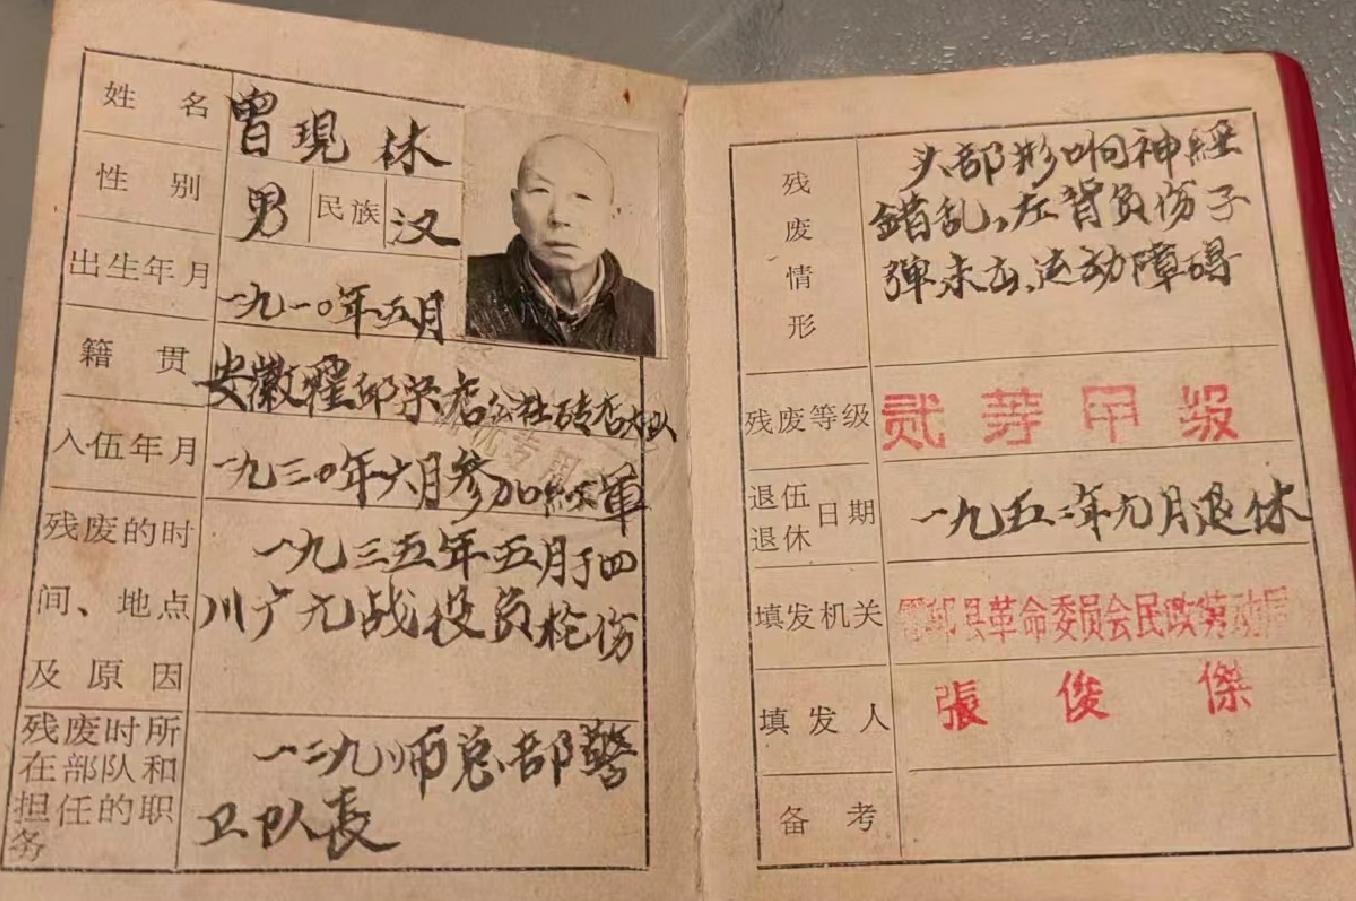 姓名 曾現林
性别 男 民族 汉
出生年月 一九一〇年五月
籍贯 安徽霍邱宋店公社砖店大队
入伍年月 一九三〇年六月参加红軍
残废的时 一九三五年五月于四
间、地点 川广元战役负枪伤
及原因
残废时所 一二九师总部警
在部队和
担任的职 卫队長
务
残废情形 头部影响神経
錯乱,左背负伤子
弹未去,运动障碍
残废等级 贰等甲级
退伍
退休 日期 一九五二年九月退休
填发机关 霍邱县革命委员会民政劳动局
填发人 張俊傑
备考